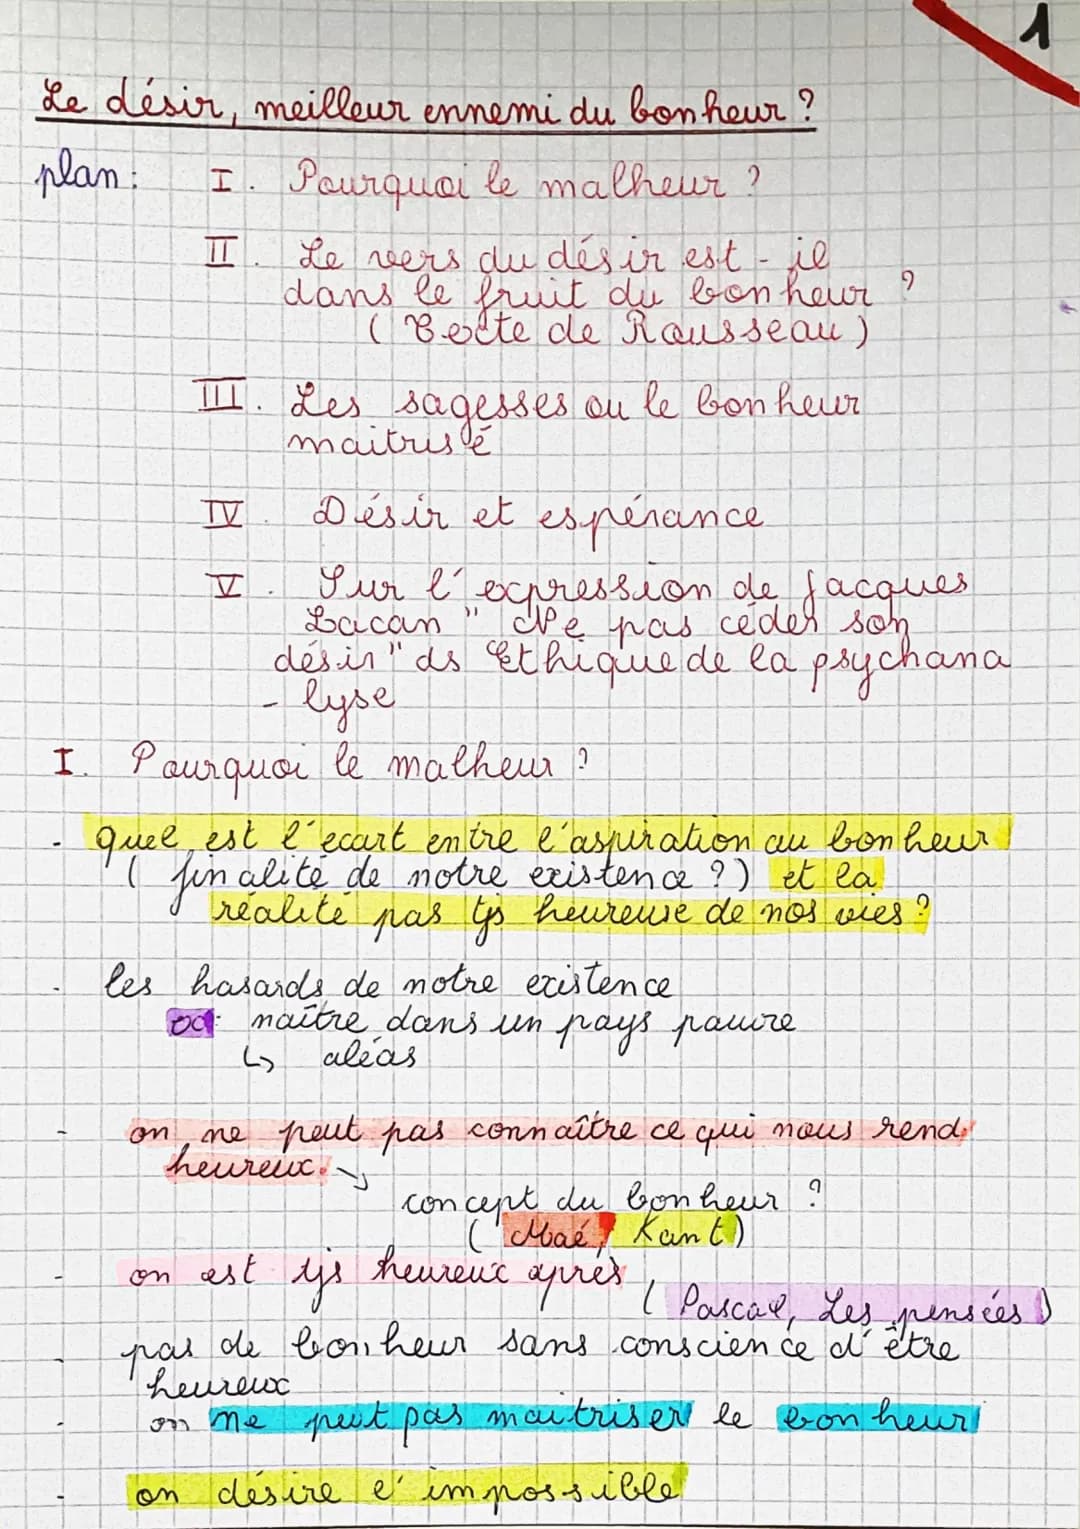 1
Le désir, meilleur ennemi du bonheur ?
plan : I. Pourquoi le malheur ?
II. Le vers du désir est-il
dans le fruit du bonheur ?
(Texte de Rousseau)
III. Les sagesses ou le bonheur
maitrisé
IV. Désir et espérance
V. Sur l'expression de Jacques
Lacan "Ne pas céder son
désir" ds Ethique de la psychana
- lyse
I. Pourquoi le malheur ?
- quel est l'écart entre l'aspiration au bonheur
(finalité de notre existence ?) et la
réalité pas tjs heureuse de nos vies ?
- les hasards de notre existence
ex: naître dans un pays pauvre
↳ aléas
- on ne peut pas connaître ce qui nous rend
heureux. ↘
concept du bonheur ?
(Maé, Kant)
- on est tjs heureux après
(Pascal, Les pensées)
- pas de bonheur sans conscience d'être
heureux
- on ne peut pas maitriser le bonheur
- on désire l'impossible